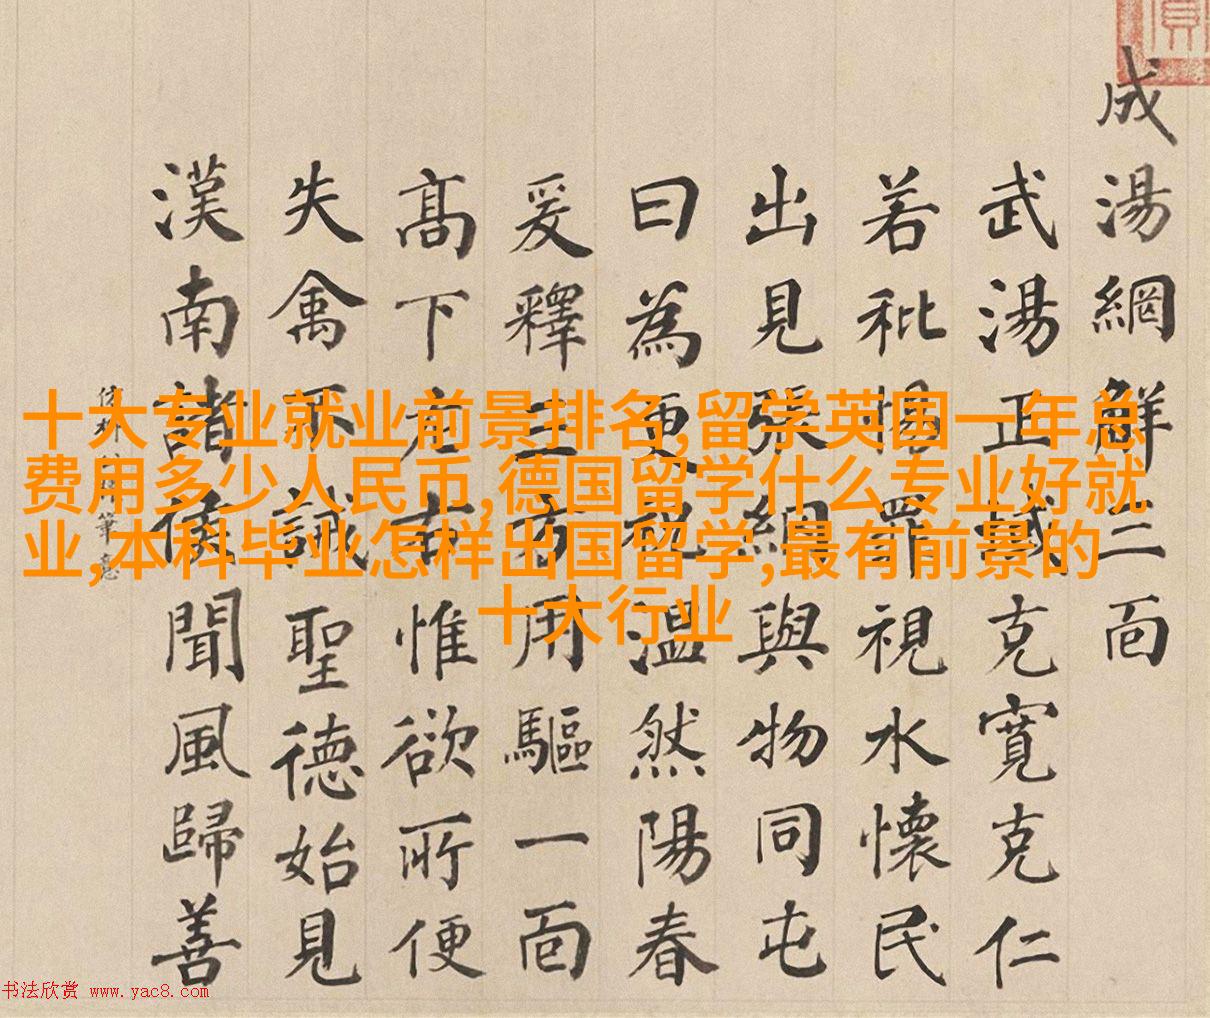 成湯網觧三面
武湯正域克寬克仁
若秕揚罪視水懷民
出見張網與物同屯
曰為更祝溫然陽春
爰釋三方用驅一面
髙下左右惟欲所便
失禽不誡聖德始見
漢南諸侯聞風歸善
十大专业就业前景排名,留学英国一年总
费用多少人民币,德国留学什么专业好就
业,本科毕业怎样出国留学,最有前景的
十大行业
书法欣赏 www.yac8.com